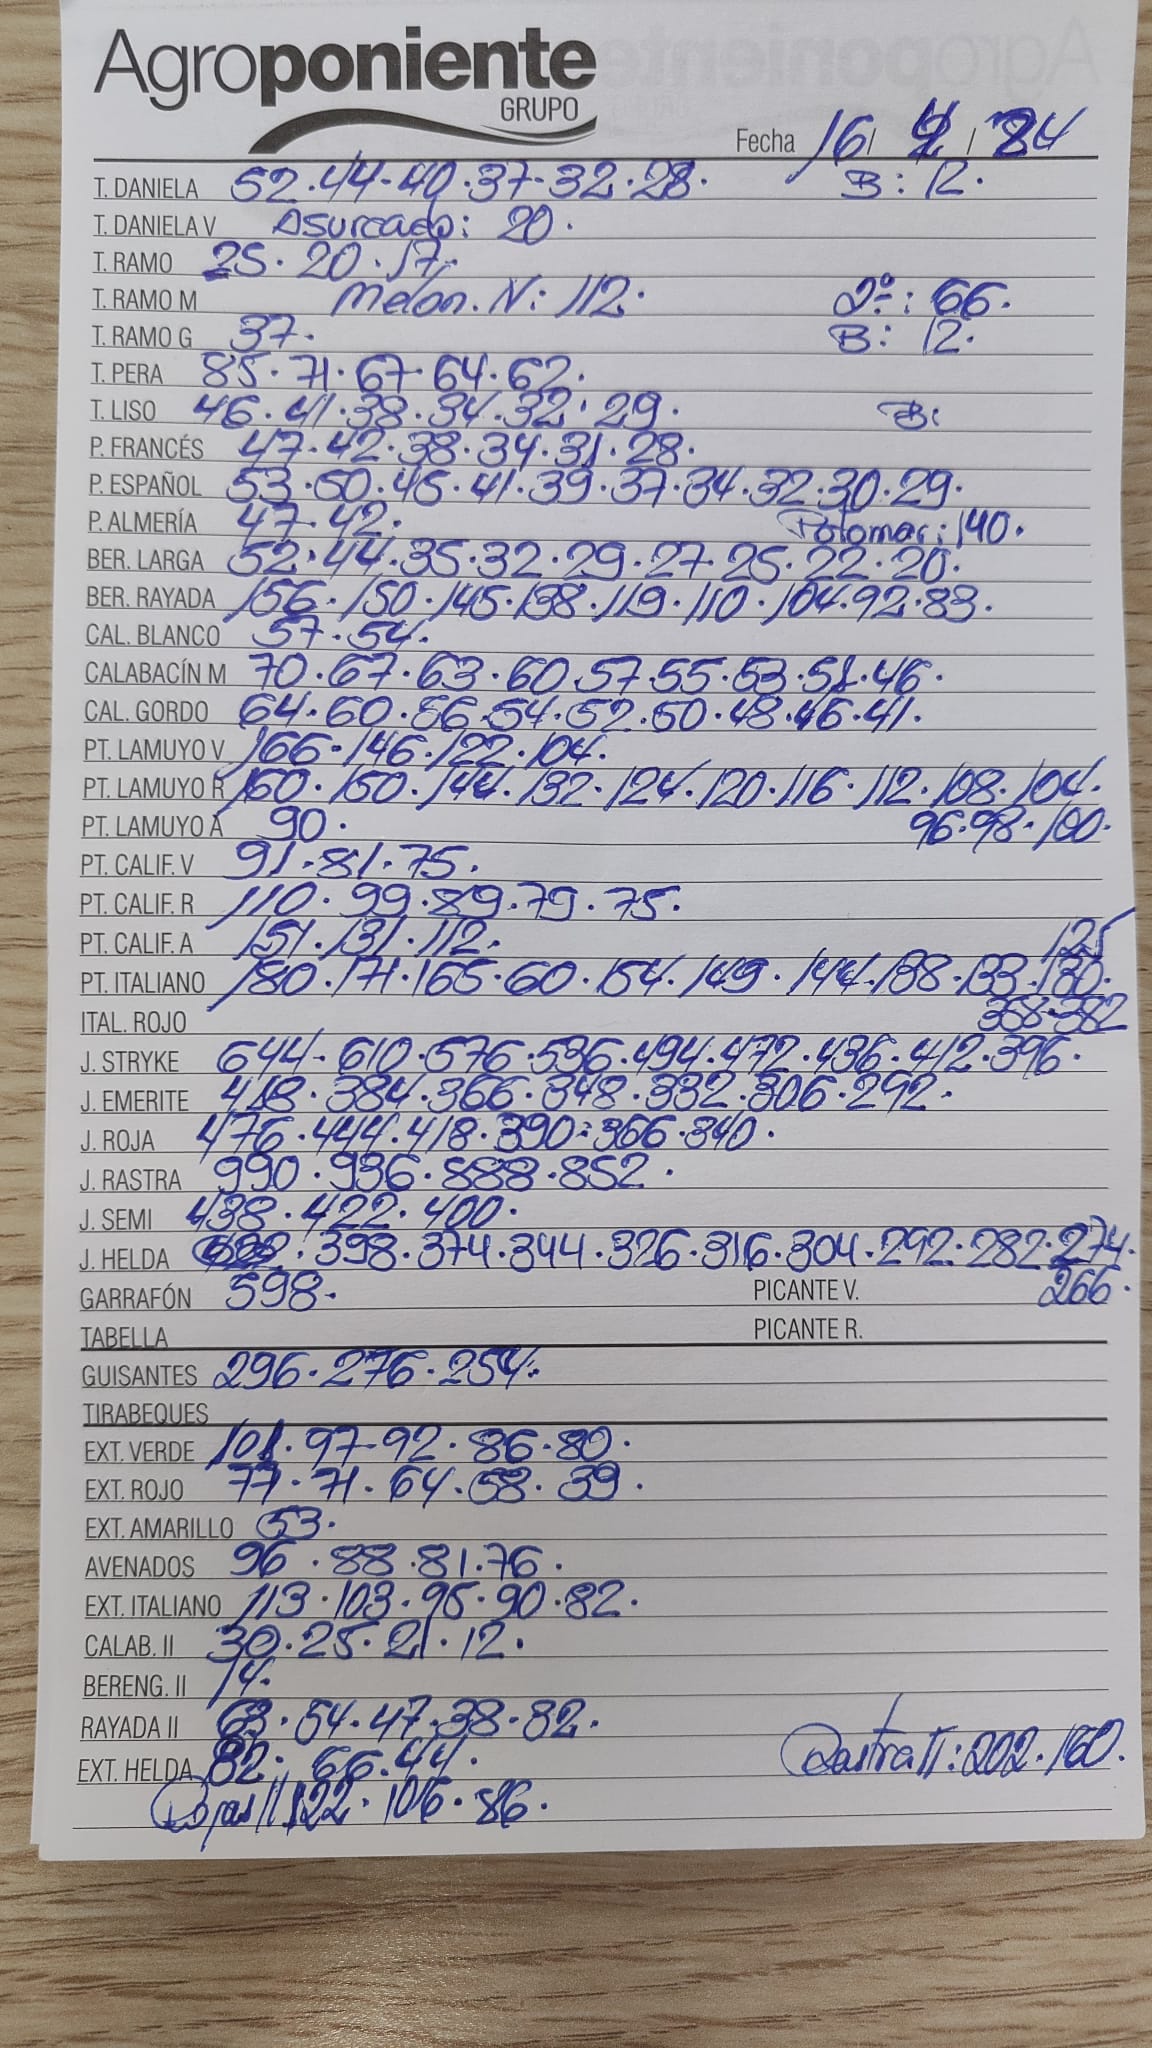 Agroponiente
GRUPO
Fecha 16/ 4 / 24
T. DANIELA 52.44-40.37-32.28. B: 12.
T. DANIELA V Asurcado: 20.
T. RAMO 25.20.17.
T. RAMO M Melón. N: 112. 2º: 66.
T. RAMO G 37. B: 12.
T. PERA 85.71.67.64.62.
T. LISO 46.41.38.34.32.29. B:
P. FRANCÉS 47.42.38.34.31.28.
P. ESPAÑOL 53.50.45.41.39.37.34.32.30.29.
P. ALMERÍA 47.42. 140.
BER. LARGA 52.44.35.32.29.27.25.22.20.
BER. RAYADA 156.150.145.138.119.110.104.92.83.
CAL. BLANCO 57.54.
CALABACÍN M 70.67.63.60.57.55.53.51.46.
CAL. GORDO 64.60.56.54.52.50.48.46.41.
PT. LAMUYO V 166.146.122.104.
PT. LAMUYO R 160.150.144.132.124.120.116.112.108.104.
PT. LAMUYO A 90. 96.98.100.
PT. CALIF. V 91.81.75.
PT. CALIF. R 110.99.89.79.75.
PT. CALIF. A 151.131.112. 125
PT. ITALIANO 180.171.165.60.154.149.144.138.133.130.
ITAL. ROJO 358.382
J. STRYKE 644.610.576.536.494.472.436.412.396.
J. EMERITE 418.384.366.348.332.306.292.
J. ROJA 476.444.418.390.366.340.
J. RASTRA 990.936.888.852.
J. SEMI 438.422.400.
J. HELDA 398.374.344.326.316.304.292.282.274.
GARRAFÓN 598. PICANTE V. 266.
TABELLA PICANTE R.
GUISANTES 296.276.254.
TIRABEQUES
EXT. VERDE 101.97-92.86.80.
EXT. ROJO 77.71.64.58.39.
EXT. AMARILLO 53.
AVENADOS 96.88.81.76.
EXT. ITALIANO 113.103.95.90.82.
CALAB. II 30.25.21.12.
BERENG. II 14.
RAYADA II 63.54.47.38.82.
EXT. HELDA 82. 66.44. Rastra II: 202.160.
Rojas II 122.106.86.